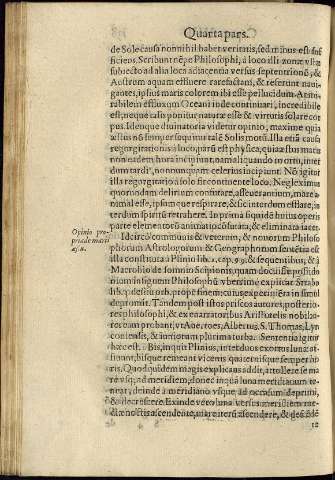 Quarta pars.
de Sole causa nonnihil habet veritatis, sed minus est
ficiens. Scribunt Philosophi, à loco illi zonæ
subiecto ad alia loca adiacentia versus septentrionẽ, &
Austrum aquam effluere rarefactam, & referunt navi-
gantes, ipsius maris colorem ibi esse pellucidum.
rabilem effluxum Oceani inde continuari, incredibile
est, neque talis ponitur naturæ esse & virtutis solare cor
pus. Idem que diuinatoria videtur opinio, maxime quia
æstus nõ semper sequi Solis motũ. Illa etiã causa
regorgitationis à loco, parũ est physica, quia æstus maris
non eadem hora incipiunt, nam aliquando in ortu, inter
dum tardi9, nonnunquam celerius incipiunt. Nõ agitor
illa regorgitatio à solo fieri continente loco. Negleximus
quorundam delirium confutare, asseverantium, mare a-
nimal esse, ipsumque respirare, & sic interdum efflare, in
terdum spiritũ retrahere. In prima siquidem huius operis
parte elementorũ anima est confutata, & eliminata
Opinio pro-
pria de maris
Idcirco communis & veterum, & novorum Philoso
phorum Astrologorum & Geographorum sententia est
illa constituta à Plinio lib. 2. cap. 99. & sequentibus, & à
Macrobio de somnio Scipionis, quam docuisse possido
nium insignem Philosophũ vberime explicat Strabo
lib. 3. de situ orb. prope finem, cuius experientia in simul
depromsit. Tandem post istos priscos autores, posterio-
res philosophi, & ex enarratoribus Aristotelis nobilio-
res eam probant, vt Aoe. roes, Albertus, S. Thomas, Lyn
coniensis, & aliorum plurima turba. Sententia igitur
hæc est. Bis, inquit Plinius, inter duos exortus lunæ
fluunt, bisque remeant vicenis quaternisque semper ho-
ris. Quod quidem magis explicans addit, attollere se ma
re vsque ad meridiem, donec in qua luna meridianum te-
neat, deinde à meridiano vsque ad occasum deprimi,
& decrescere. Exinde vero luna versus meridiem
diæ noctis ascendente, mare iterũ ascendere, &